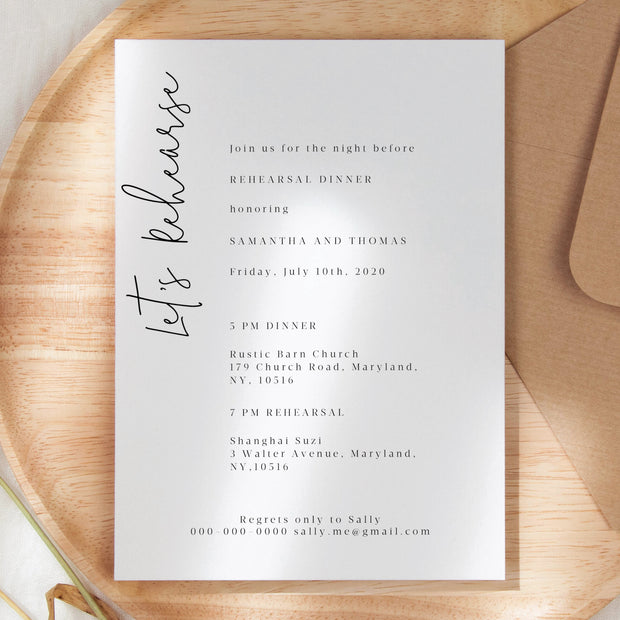 Let's Rehearse
Join us for the night before
REHEARSAL DINNER
honoring
SAMANTHA AND THOMAS
Friday, July 10th, 2020
5 PM DINNER
Rustic Barn Church
179 Church Road, Maryland,
NY, 10516
7 PM REHEARSAL
Shanghai Suzi
3 Walter Avenue, Maryland,
NY,10516
Regrets only to Sally
000-000-0000 sally.me@gmail.com